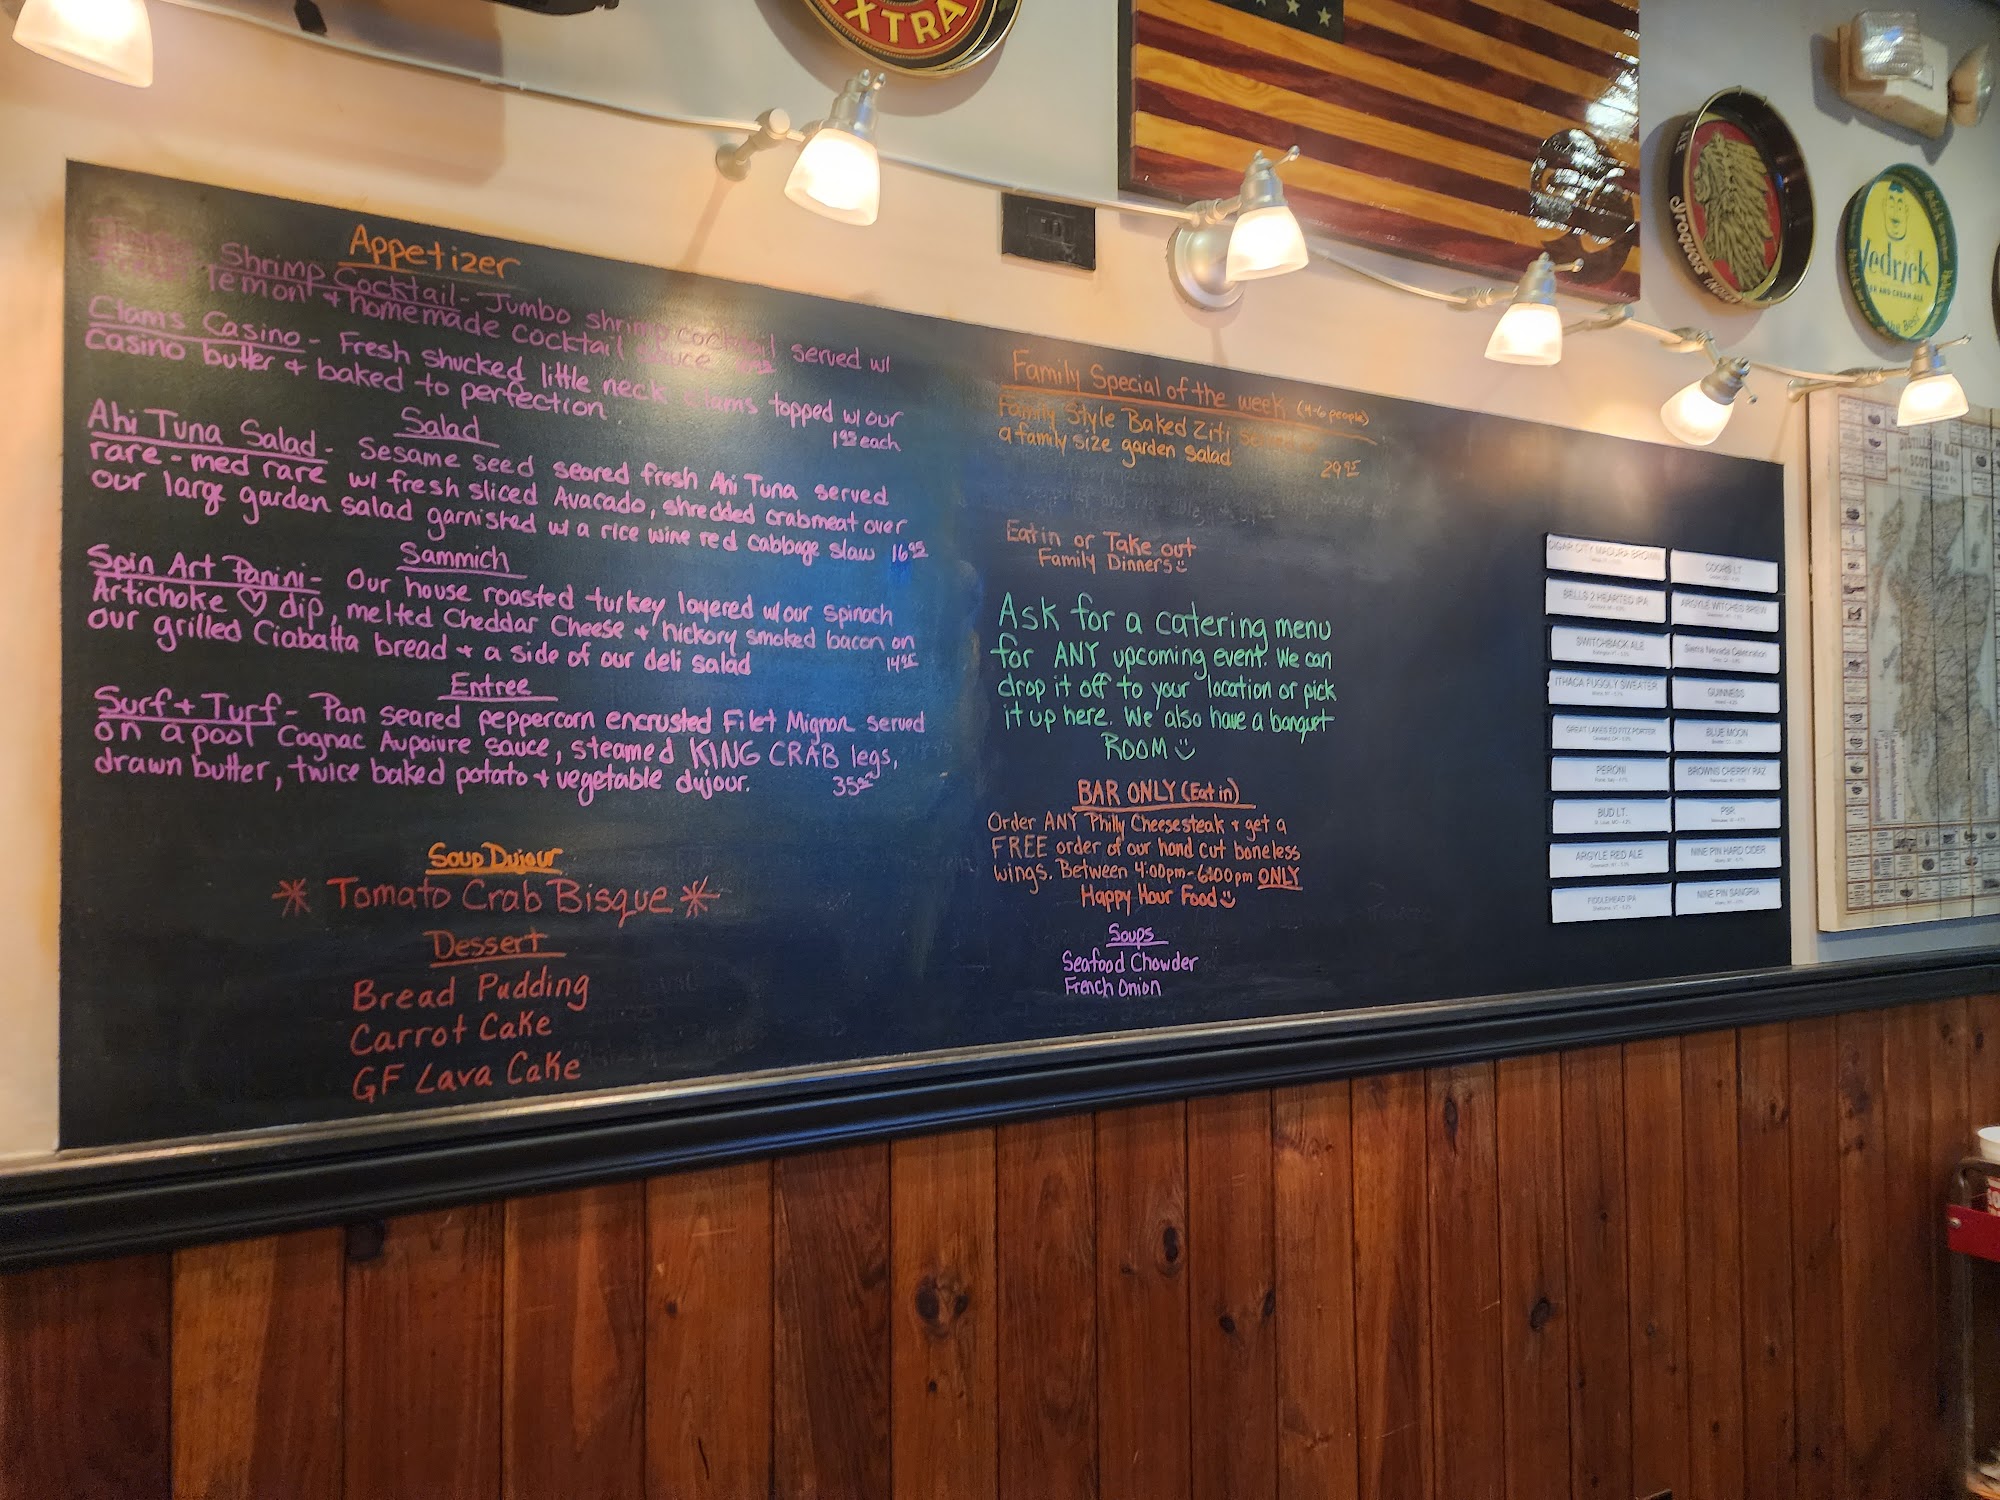 EXTRA
Iroquois
Hedrick
Appetizer
Shrimp Cocktail - Jumbo shrimp cocktail served w/
lemon + homemade cocktail sauce
Clams Casino - Fresh shucked little neck clams topped w/ our
casino butter + baked to perfection 1⁹⁵ each
Salad
Ahi Tuna Salad - Sesame seed seared fresh Ahi Tuna served
rare - med rare w/ fresh sliced Avacado, shredded crabmeat over
our large garden salad garnished w/ a rice wine red cabbage slaw 16⁹⁵
Sammich
Spin Art Panini - Our house roasted turkey layered w/ our spinach
Artichoke ♡ dip, melted Cheddar Cheese + hickory smoked bacon on
our grilled Ciabatta bread + a side of our deli salad 14⁹⁵
Entree
Surf + Turf - Pan seared peppercorn encrusted Filet Mignon served
on a pool Cognac Aupoivre sauce, steamed KING CRAB legs,
drawn butter, twice baked potato + vegetable dujour. 35⁹⁵
Soup Dujour
* Tomato Crab Bisque *
Dessert
Bread Pudding
Carrot Cake
GF Lava Cake
Family Special of the week (4-6 people)
Family Style Baked Ziti
a family size garden salad 29⁹⁵
Eat in or Take out
Family Dinners
Ask for a catering menu
for ANY upcoming event. We can
drop it off to your location or pick
it up here. We also have a banquet
ROOM
BAR ONLY (Eat in)
Order ANY Philly Cheesesteak + get a
FREE order of our hand cut boneless
wings. Between 4:00pm-6:00pm ONLY
Happy Hour Food
Soups
Seafood Chowder
French Onion
CIGAR CITY MADURA BROWN
BELLS 2 HEARTED IPA
SWITCHBACK ALE
ITHACA FUGGLY SWEATER
GREAT LAKES ED FITZ PORTER
PERONI
BUD LT.
ARGYLE RED ALE
FIDDLEHEAD IPA
COORS LT.
ARGYLE WITCHES BREW
Sierra Nevada Celebration
GUINNESS
BLUE MOON
BROWNS CHERRY RAZ
PBR
NINE PIN HARD CIDER
NINE PIN SANGRIA